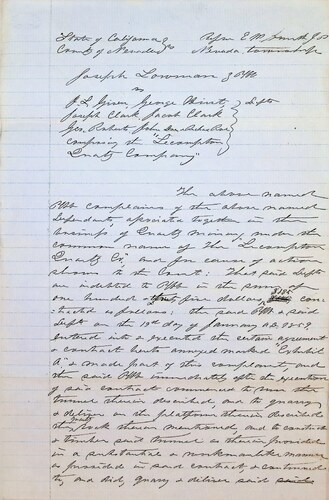 State of California } Before E. W. Smith J.P.
County of Nevada } Nevada township
Joseph Lowman } Pltff
vs
J. L. Given, George Hirst, } Defts
Joseph Clark, Jacob Clark
Geo. Roberts, John
comprising the "Lecompton
Quartz Company"
The above named
Pltff complaines of the above named
Defendants asociated together in the
business of Quartz Mining, under the
common name of The "Lecompton
Quartz Co" and for cause of action
shows to the Court: That said Defts
are indebted to Pltff in the sum of
one hundred & five dollars $105 con-
tracted as follows: the said Pltff & said
Defts on the 19th day of January A.D. 1859
entered into & executed the certain agreement
& contract hereto annexed marked "Exhibit
A" & made part of this complaint, and
the said Pltff immediately after the execution
of said contract commenced to run the
tunnel therein described, and to quarry
& deliver on the platform therein described
the quartz rock therein mentioned, and to construct
& timber said tunnel as therein provided
in a substantial & workmanlike manner
as provided in said contract, & continued
to, and did, quarry & deliver said